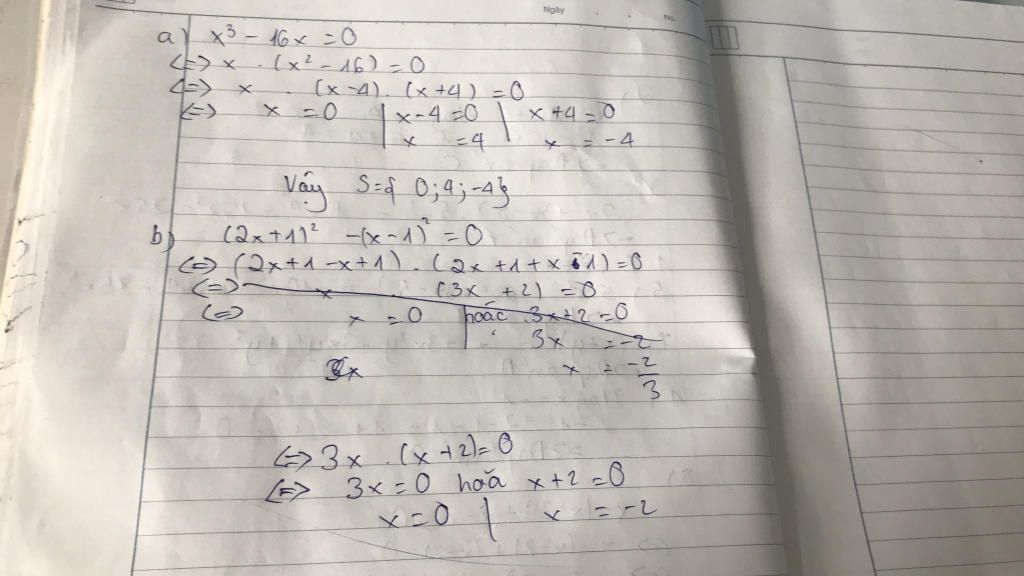 Ngày
No.
a) x³ - 16x = 0
<=> x . (x² - 16) = 0
<=> x . (x-4) . (x+4) = 0
<=> x = 0 | x-4 = 0 | x+4 = 0
x = 4 x = -4
Vậy S = { 0; 4; -4}
b) (2x+1)² - (x-1)² = 0
<=> (2x+1-x+1) . (2x+1+x-1) = 0
<=> x . (3x +2) = 0
<=> x = 0 | hoặc 3x+2 = 0
3x = -2
x = -2/3
<=> 3x . (x+2) = 0
<=> 3x = 0 hoă x+2 = 0
x = 0 | x = -2